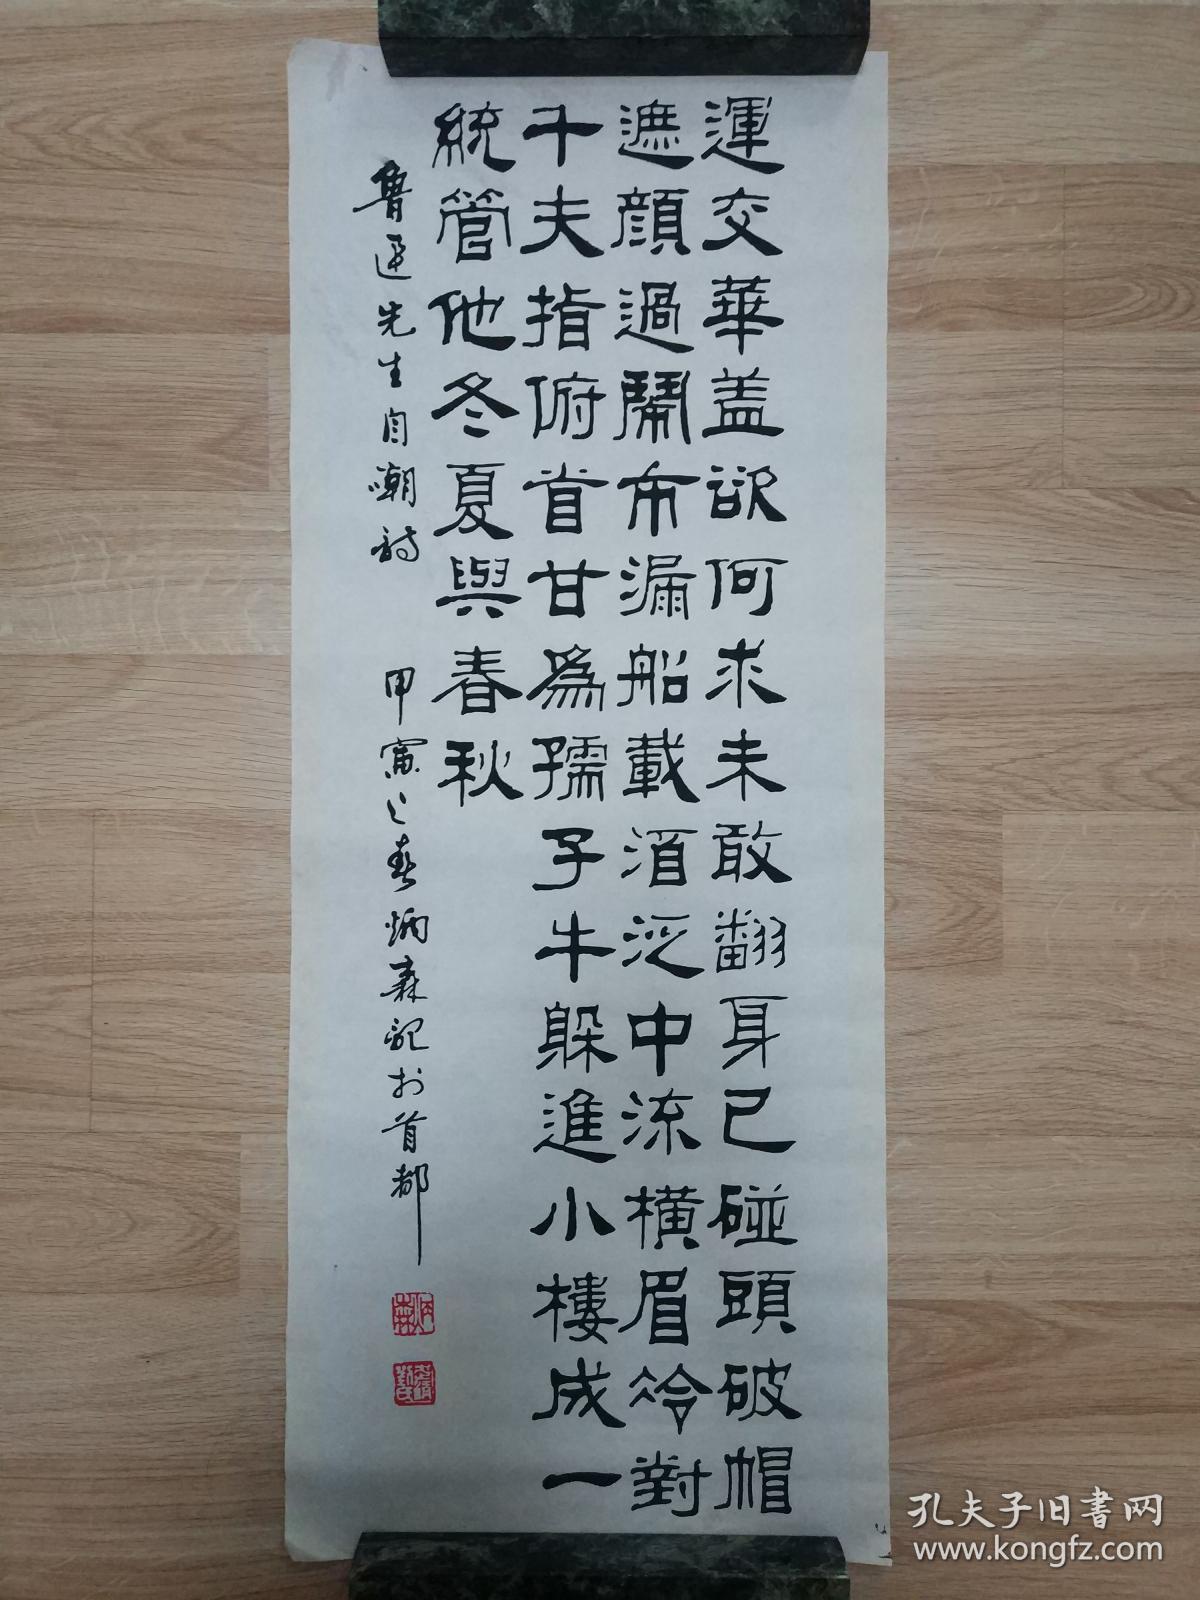 運交華盖欲何求未敢翻身已碰頭破帽
遮顔過鬧市漏船載酒泛中流橫眉冷對
千夫指俯首甘為孺子牛躲進小樓成一
統管他冬夏與春秋
魯迅先生自嘲詩 甲寅之春炳森記於首都
炳森
孔夫子旧书网
www.kongfz.com